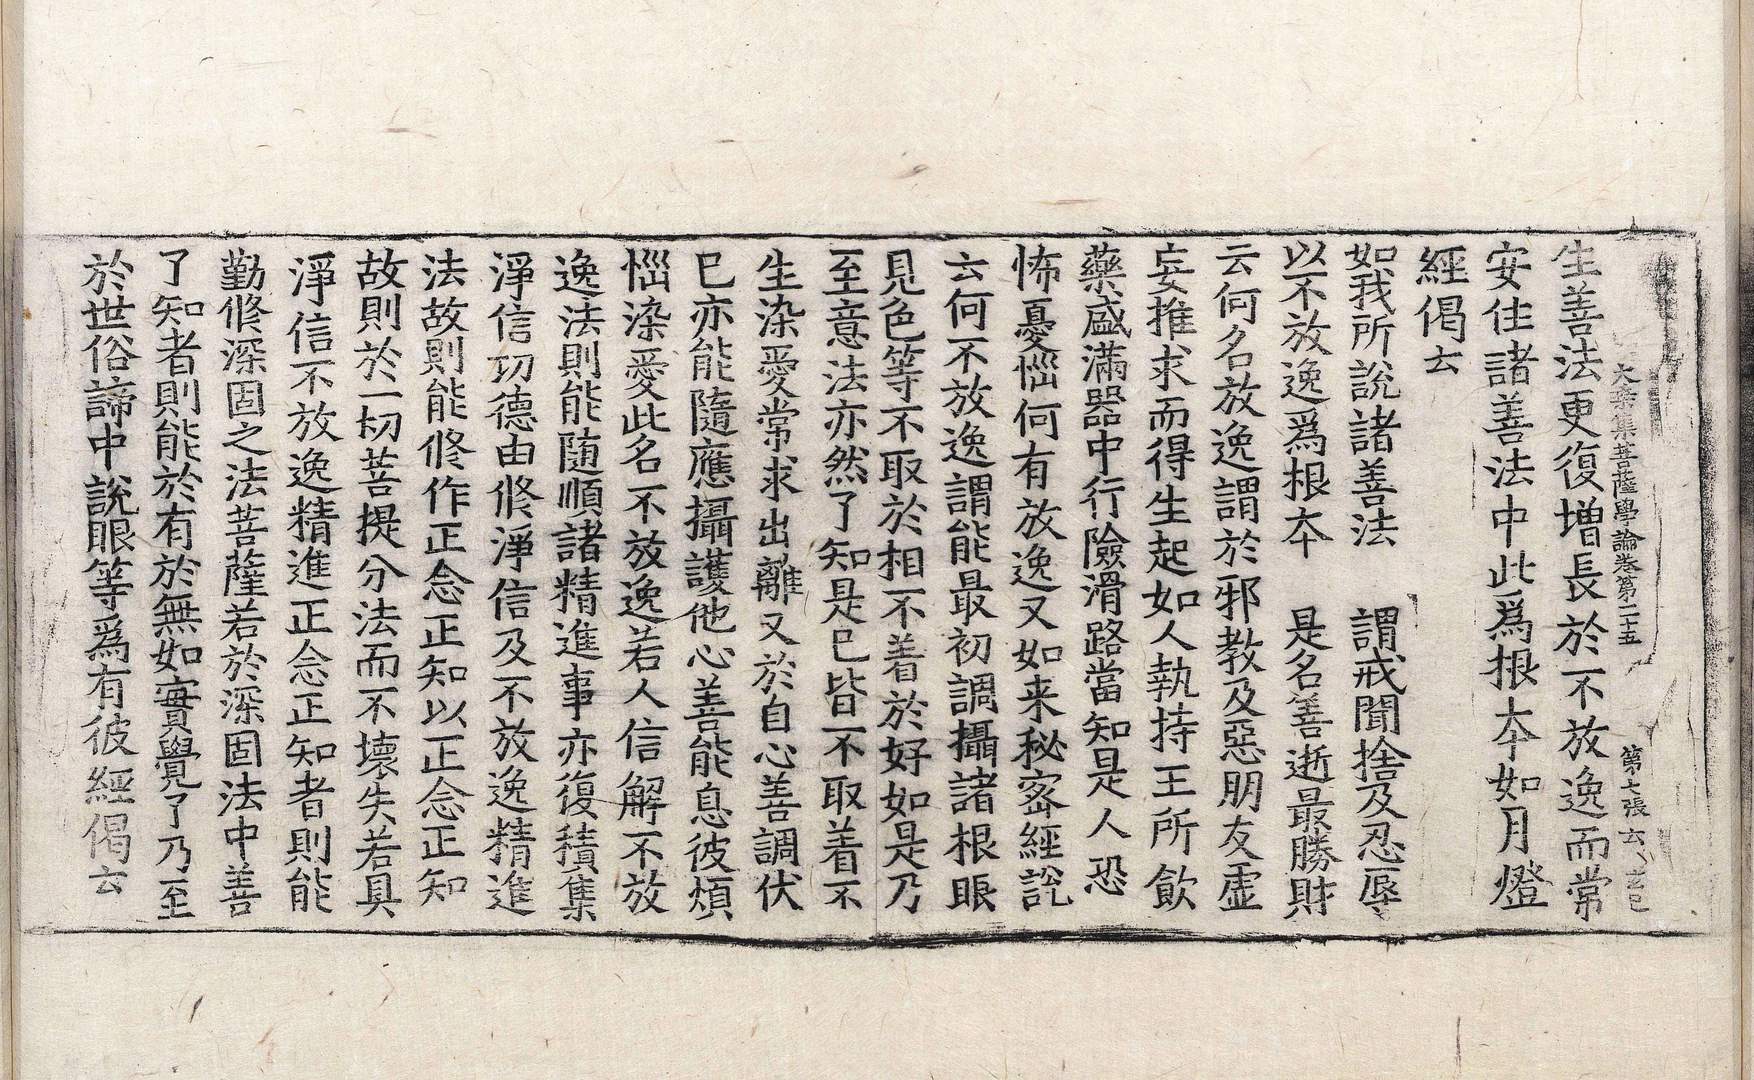 大乘集菩薩學論卷第二十五　第七張　
生善法更復增長於不放逸而常
安住諸善法中此爲根本如月燈
經偈云
如我所說諸善法　謂戒聞捨及忍辱
以不放逸爲根本　是名善逝最勝財
云何名放逸謂於邪教及惡朋友虛
妄推求而得生起如人執持王所飲
藥盛滿器中行險滑路當知是人恐
怖憂惱何有放逸又如来秘密經說
云何不放逸謂能最初調攝諸根眼
見色等不取於相不着於好如是乃
至意法亦然了知是已皆不取着不
生染愛常求出離又於自心善調伏
已亦能隨應攝護他心善能息彼煩
惱染愛此名不放逸若人信解不放
逸法則能随順諸精進事亦復積集
淨信功德由修淨信及不放逸精進
法故則能修作正念正知以正念正知
故則於一切菩提分法而不壞失若具
淨信不放逸精進正念正知者則能
勤修深固之法菩薩若於深固法中善
了知者則能於有於無如實覺了乃至
於世俗諦中說眼等爲有彼經偈云